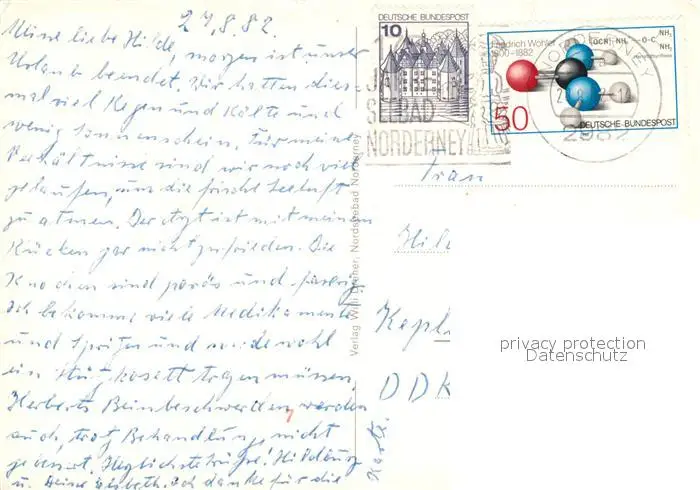 27.8.82.
Meine liebe Hilde, morgen ist unser
Urlaub beendet. Wir hatten dies-
mal viel Regen und Kälte und
wenig Sonnenschein. Für meine
Verhältnisse sind wir noch viel
gelaufen, um die frische Seeluft
zu atmen. Der Arzt ist mit meinem
Rücken gar nicht zufrieden. Die
Knochen sind porös und faserig.
Ich bekomme viele Medikamente
und Spritzen und werde wohl
ein Stützkosett tragen müssen.
Herberts Beinbeschwerden werden
auch, trotz Behandlung, nicht
gebessert. Herzlichste Grüße! Hildburg
u. Deine Ich danke für die
Karte.
Verlag Willi Dreher, Nordseebad Norderney
DEUTSCHE BUNDESPOST
10
SEEBAD
NORDERNEY
Friedrich Wöhler
1800-1882
DEUTSCHE BUNDESPOST
50
NORDERNEY
2982
Frau
Hil
Kepl
DDR
privacy protection
Datenschutz